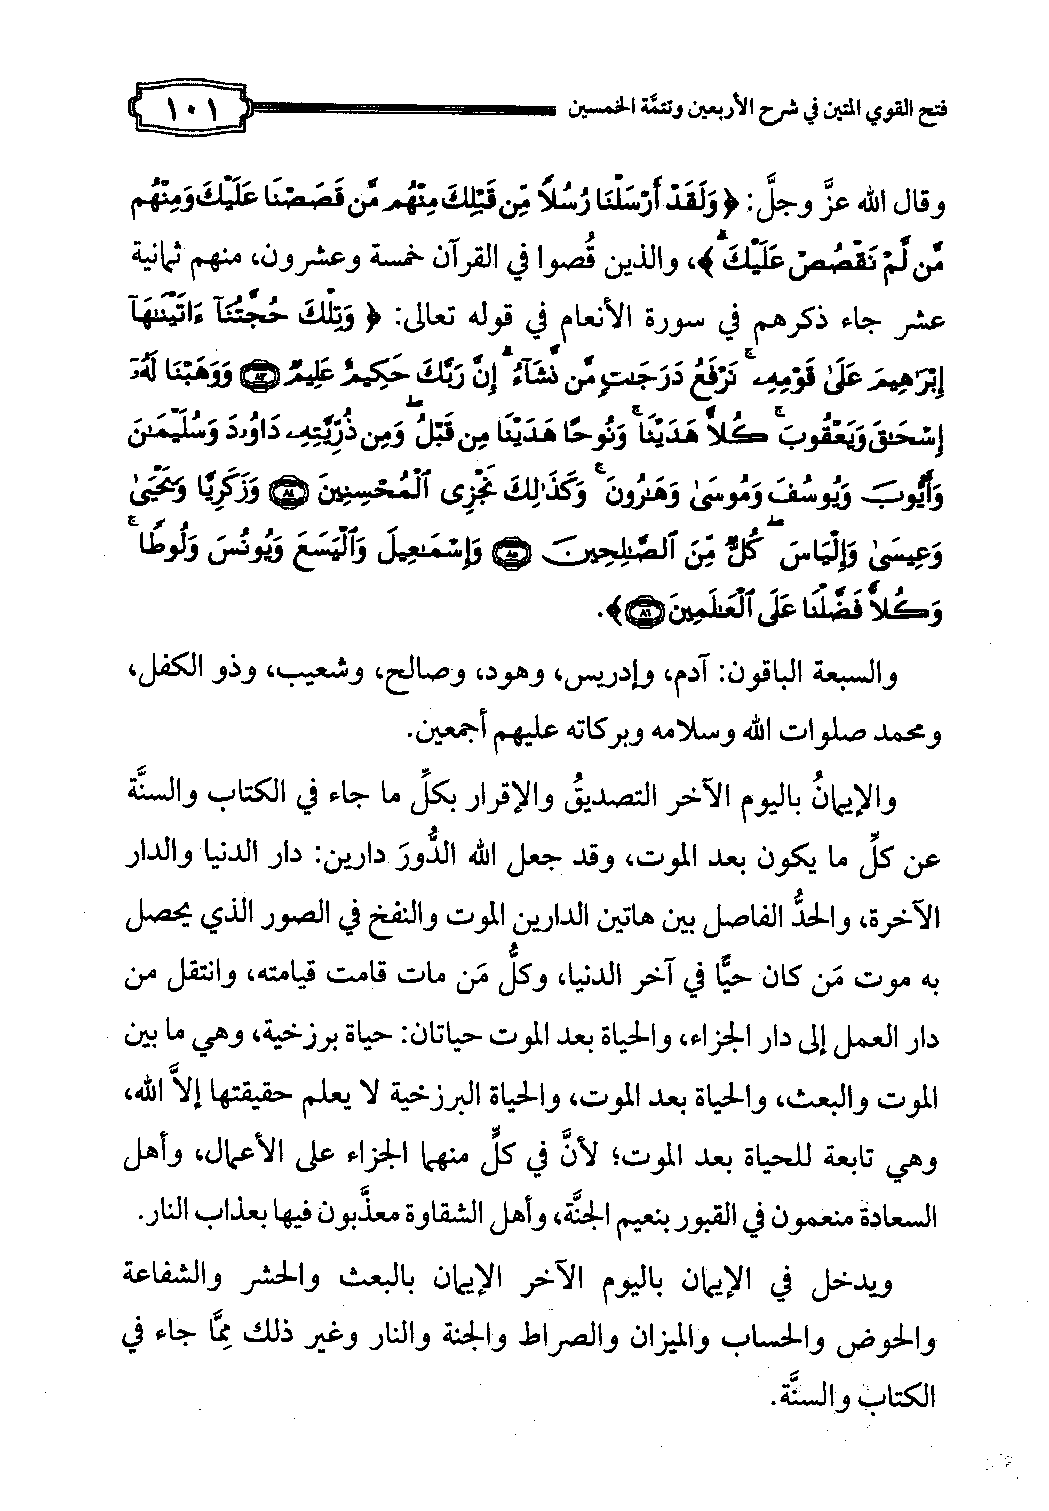 فتح القوي المتين في شرح الأربعين وتتمَّة الخمسين ١٠١
وقال الله عزَّ وجلَّ: ﴿ وَلَقَدْ أَرْسَلْنَا رُسُلًا مِّن قَبْلِكَ مِنْهُم مَّن قَصَصْنَا عَلَيْكَ وَمِنْهُم
مَّن لَّمْ نَقْصُصْ عَلَيْكَ ۗ ﴾، والذين قُصوا في القرآن خمسة وعشرون، منهم ثمانية
عشر جاء ذكرهم في سورة الأنعام في قوله تعالى: ﴿ وَتِلْكَ حُجَّتُنَآ ءَاتَيْنَٰهَآ
إِبْرَٰهِيمَ عَلَىٰ قَوْمِهِۦ ۚ نَرْفَعُ دَرَجَٰتٍ مَّن نَّشَآءُ ۗ إِنَّ رَبَّكَ حَكِيمٌ عَلِيمٌ ﴿٨٣﴾ وَوَهَبْنَا لَهُۥٓ
إِسْحَٰقَ وَيَعْقُوبَ ۚ كُلًّا هَدَيْنَا ۚ وَنُوحًا هَدَيْنَا مِن قَبْلُ ۖ وَمِن ذُرِّيَّتِهِۦ دَاوُۥدَ وَسُلَيْمَٰنَ
وَأَيُّوبَ وَيُوسُفَ وَمُوسَىٰ وَهَٰرُونَ ۚ وَكَذَٰلِكَ نَجْزِى ٱلْمُحْسِنِينَ ﴿٨٤﴾ وَزَكَرِيَّا وَيَحْيَىٰ
وَعِيسَىٰ وَإِلْيَاسَ ۖ كُلٌّ مِّنَ ٱلصَّٰلِحِينَ ﴿٨٥﴾ وَإِسْمَٰعِيلَ وَٱلْيَسَعَ وَيُونُسَ وَلُوطًا ۚ
وَكُلًّا فَضَّلْنَا عَلَى ٱلْعَٰلَمِينَ ﴿٨٦﴾ ﴾.
والسبعة الباقون: آدم، وإدريس، وهود، وصالح، وشعيب، وذو الكفل،
ومحمد صلوات الله وسلامه وبركاته عليهم أجمعين.
والإيمانُ باليوم الآخر التصديقُ والإقرار بكلِّ ما جاء في الكتاب والسنَّة
عن كلِّ ما يكون بعد الموت، وقد جعل الله الدُّورَ دارين: دار الدنيا والدار
الآخرة، والحدُّ الفاصل بين هاتين الدارين الموت والنفخ في الصور الذي يحصل
به موت مَن كان حيًّا في آخر الدنيا، وكلُّ مَن مات قامت قيامته، وانتقل من
دار العمل إلى دار الجزاء، والحياة بعد الموت حياتان: حياة برزخية، وهي ما بين
الموت والبعث، والحياة بعد الموت، والحياة البرزخية لا يعلم حقيقتها إلاَّ الله،
وهي تابعة للحياة بعد الموت؛ لأنَّ في كلٍّ منهما الجزاء على الأعمال، وأهل
السعادة منعمون في القبور بنعيم الجنَّة، وأهل الشقاوة معذَّبون فيها بعذاب النار.
ويدخل في الإيمان باليوم الآخر الإيمان بالبعث والحشر والشفاعة
والحوض والحساب والميزان والصراط والجنة والنار وغير ذلك مِمَّا جاء في
الكتاب والسنَّة.